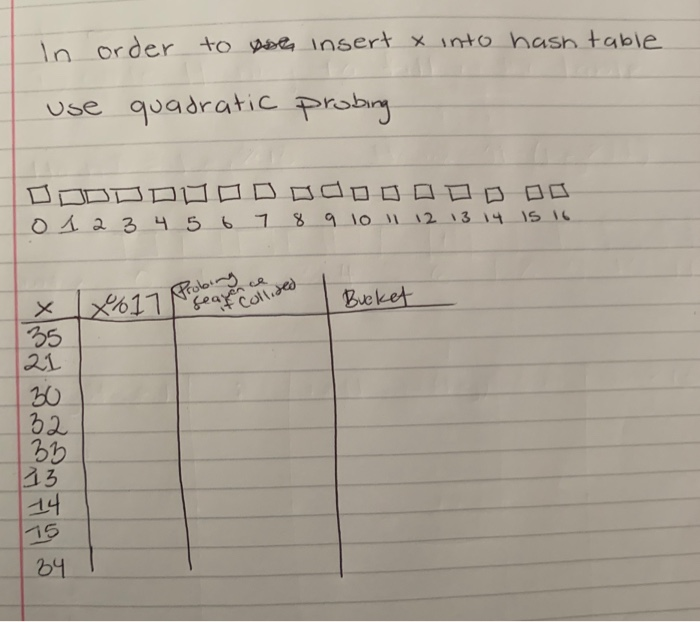 In order to insert x into hash table
use quadratic probing
0 1 2 3 4 5 6 7 8 9 10 11 12 13 14 15 16
x x%17 Probing Bucket
if collided
35
21
30
32
33
13
14
15
34